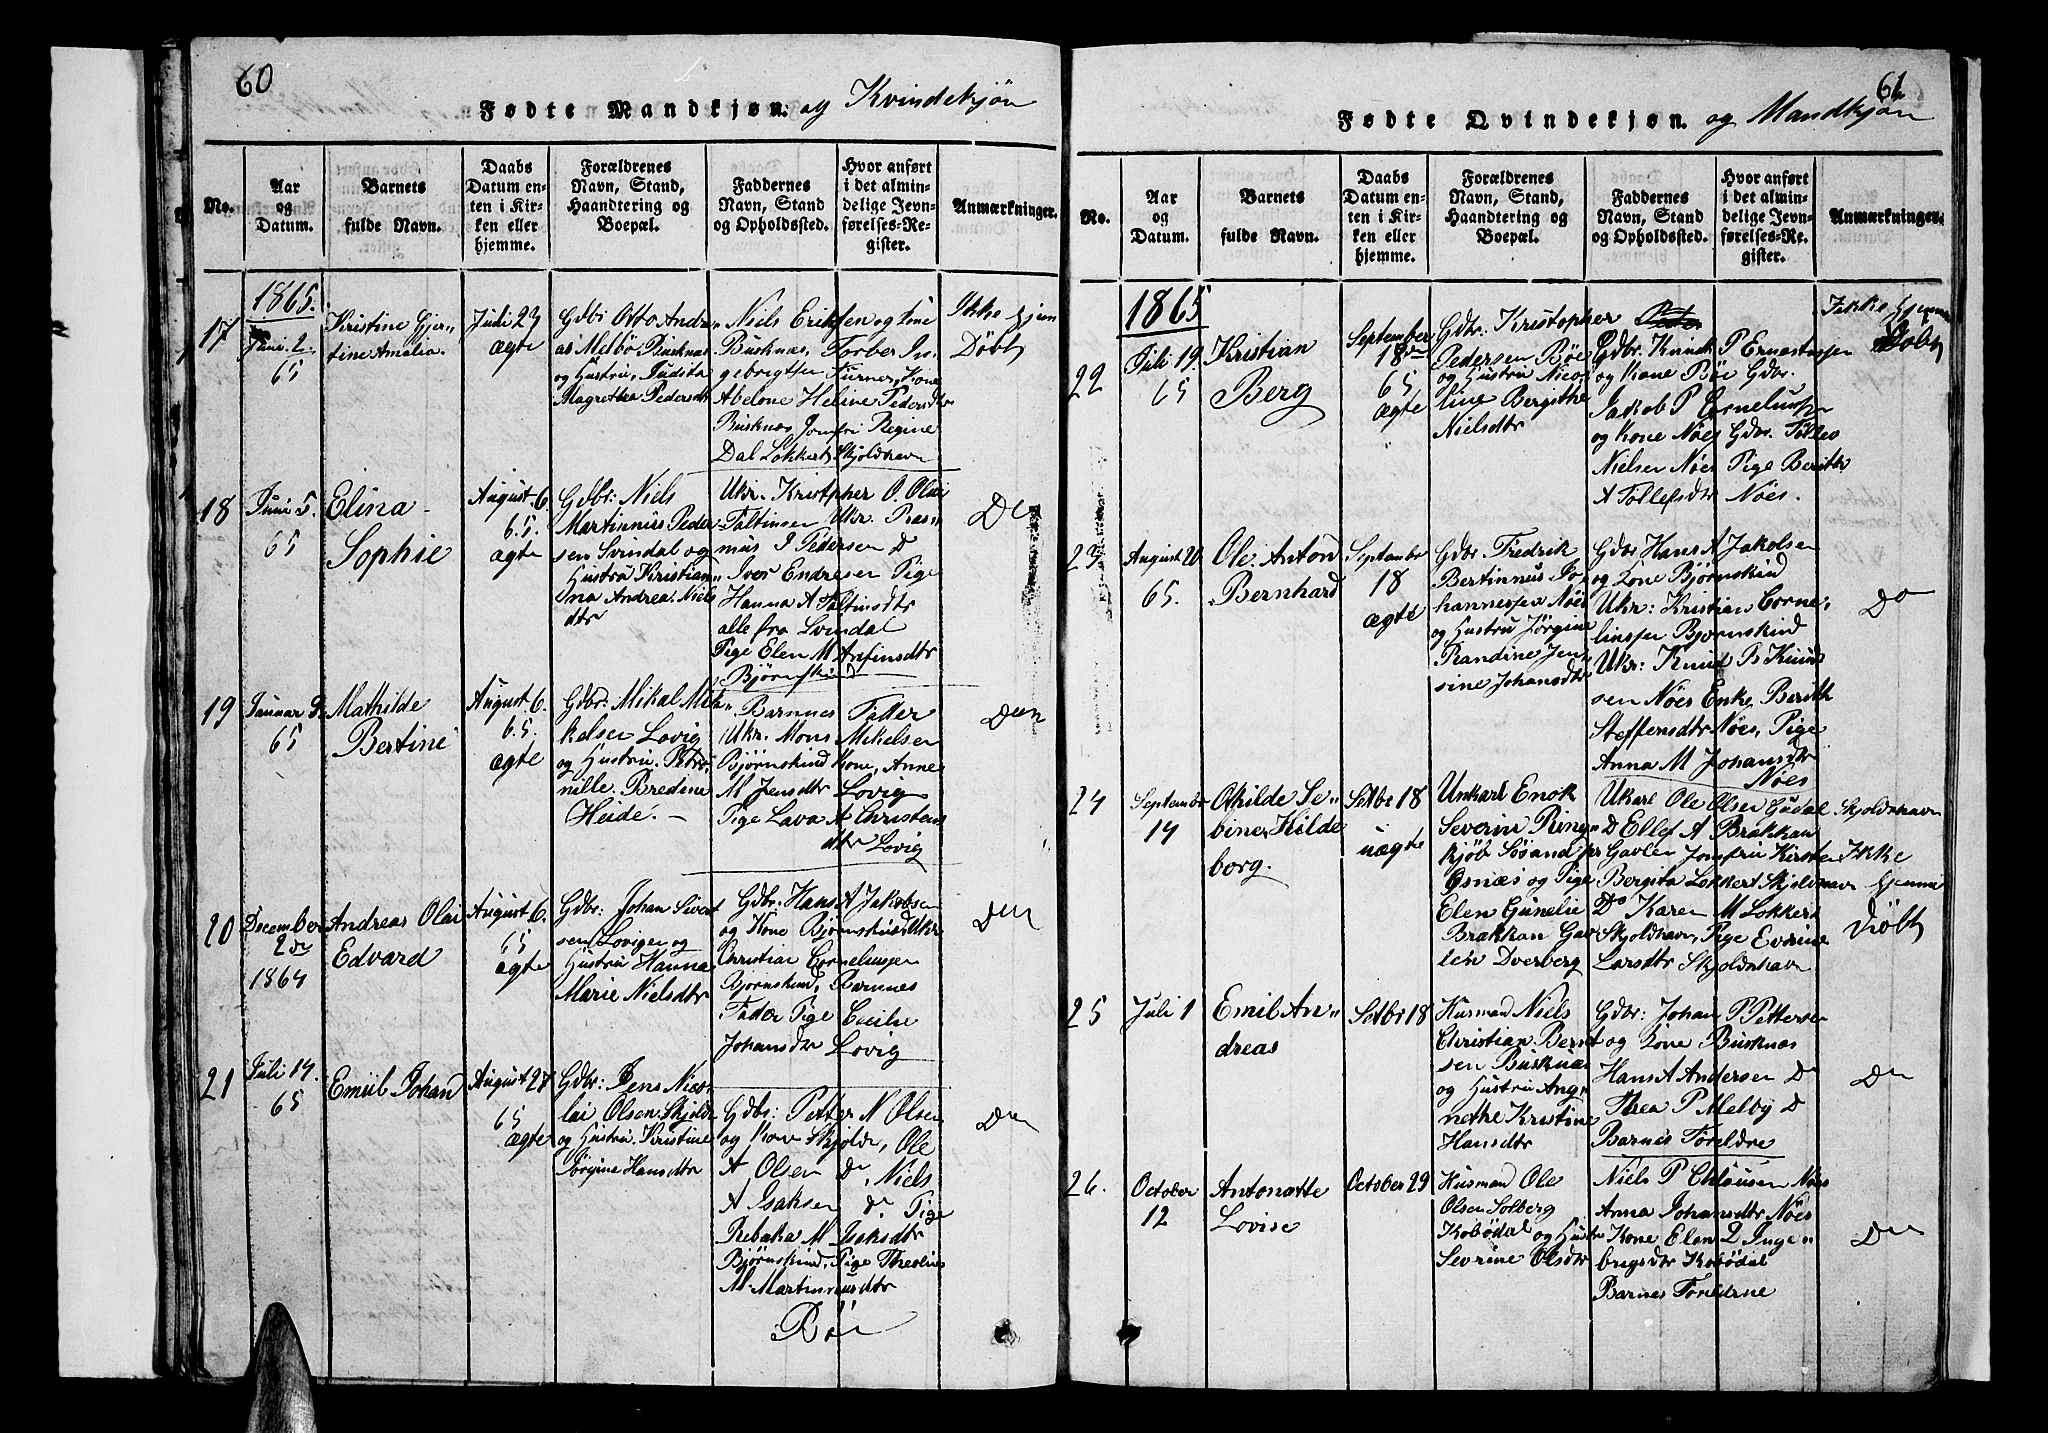 60
Fødte Mandkjøn. og Kvindekjøn
No.
Aar og Datum.
Barnets fulde Navn.
Daabs Datum enten i Kirken eller hjemme.
Forældrenes Navn, Stand, Haandtering og Boepæl.
Faddernes Navn, Stand og Opholdssted.
Hvor anført i det almindelige Jevnførelses-Register.
Anmærkninger.
1865.
17
Juni 2
65
Kristine Gjer-
tine Amalia.
Juli 23
ægte
Gdbr Otto Andre
as Melbö Busknæs
og Hustru, Judita
Magrethea Pedersdtr
Niels Eriksen og Kone
Busknæs, Torber In-
gebrigtsen Furnes, Kone
Abelone Heline Pedersdtr
Busknæs Jomfru Regine
Dal Lokkert Skjoldhavn
Ikke hjem
Döbt
18
Juni 5.
65
Elina
Sophie
August 6.
65.
ægte
Gdbr: Niels
Martinnus Peder
sen Svindal og
Hustru Kristian-
na Andrea Niels
dtr
Ukr. Kristpher O. Olai
Taltinsen Ukr. Ras-
mus I Pedersen D
Iver Endresen Pige
Hanna A Taltinsdtr
alle fra Svindal
Pige Elen M Arfinsdtr
Björnskind
Do
19
Januar 9.
65
Mathilde
Bertine
August 6.
65.
ægte
Gdbr: Mikal Mik
kelsen Lovig
og Hustru. Petro
nille. Bredine
Heide. -
Barnnes Fader
Ukr. Mons Mikelsen
Björnskind Kone, Anne
M Jensdtr Lovig
Pige Lava A Christens
dtr Lovig
Do
20
December
2den
1864
Andreas Olai
Edvard
August 6.
65
ægte
Gdbr: Johan Sivert
sen Lovigen og
Hustru Hanna
Marie Nielsdtr
Gdbr. Hans A Jakobsen
og Kone Björnskind Ukr
Christian Corneliussen
Bjornskind, Barnnes
Fader Pige Cecilie
Johansdtr Lovig
Do
21
Juli 14.
65
Emiil Johan
August 27
65
ægte
Gdbr: Jens Nico-
lai Olsen Skjolde
og Hustru. Kristine
Jörgine Hansdtr
Gdbr: Petter N Olsen
og Kone Skjolde, Ole
A Olsen Do, Niels
A Isaksen do Pige
Rebaka M Isaksdtr
Björnskind, Pige Theoline
M. Martinnusdtr
Böe
Do
61
Fødte Qvindekjøn. og Mandkjøn
No.
Aar og Datum.
Barnets fulde Navn.
Daabs Datum enten i Kirken eller hjemme.
Forældrenes Navn, Stand, Haandtering og Boepæl.
Faddernes Navn, Stand og Opholdssted.
Hvor anført i det almindelige Jevnførelses-Register.
Anmærkninger.
1865
22
Juli 19.
65
Kristian
Berg
September
18de
65
ægte
Gdbr. Kristopher
Pedersen Böe
og Hustru Nico-
line Bergithe
Nielsdtr
Gdbr. Knud P Ernestussen
og Kone Böe Gdbr.
Jakob P Corneliussen
og Kone Nöes Gdbr. Tollev
Nielsen Nöes Pige Berith
A Tollefsdtr Nöes.
Ikke hjemme
Döbt
23
August 20
65.
Ole Anton
Bernhard
September
18
ægte
Gdbr. Fredrik
Bertinnus Jo-
hannessen Nöes
og Hustru Jörgine
Randine Jen-
sine Johansdtr
Gdbr Hans A Jakobsen
og Kone Björnskind
Ukr: Kristian Corne-
liussen Bjornskind
Ukr: Knud B Knud
sen Nöes Enke Berith
Steffensdtr Nöes, Pige
Anna M Johansdtr
Nöes
Do
24
September
14
Othilde Se-
bine, Hilde
borg.
Setbr 18
uægte
Unkarl Enok
Severin Ring-
kjöb Söeand pr
Osnæs og Pige
Elen Gunelie
Brakkan Gav
len Dverberg
Ukarl Ole Olsen Gudal
D Ellef A Brakkan
Gavlen Jomfru Kirsten
Bergita Lokkert Skjoldhavn
Do Karen M Lokkert
Skjoldhavn, Pige Evrine
Larsdtr Skjoldhavn
Skjoldhavn
Ikke
hjemme
Döbt
25
Juli 1
Emil An-
dreas
Setbr 18
Husmand Niels
Christian Bernt
sen Busknæs
og Hustru Ang-
nethe Kristine
Hansdtr
Gdbr: Johan P Pettersen
og Kone Busknæs
Hans A Andersen D
Thea P Melby D
Barnes Foreldre
Do
26.
October
12
Antonatte
Lovise
October 29
Husmand Ole
Olsen Solberg
Kobödal og Hustru
Sevrine Olsdtr
Niels P Chlausen Nöes
Anna Johansdtr Nöes
Kone Elen D Inge-
brigsdtr Kobödal
Barnes Foreldrne
Do